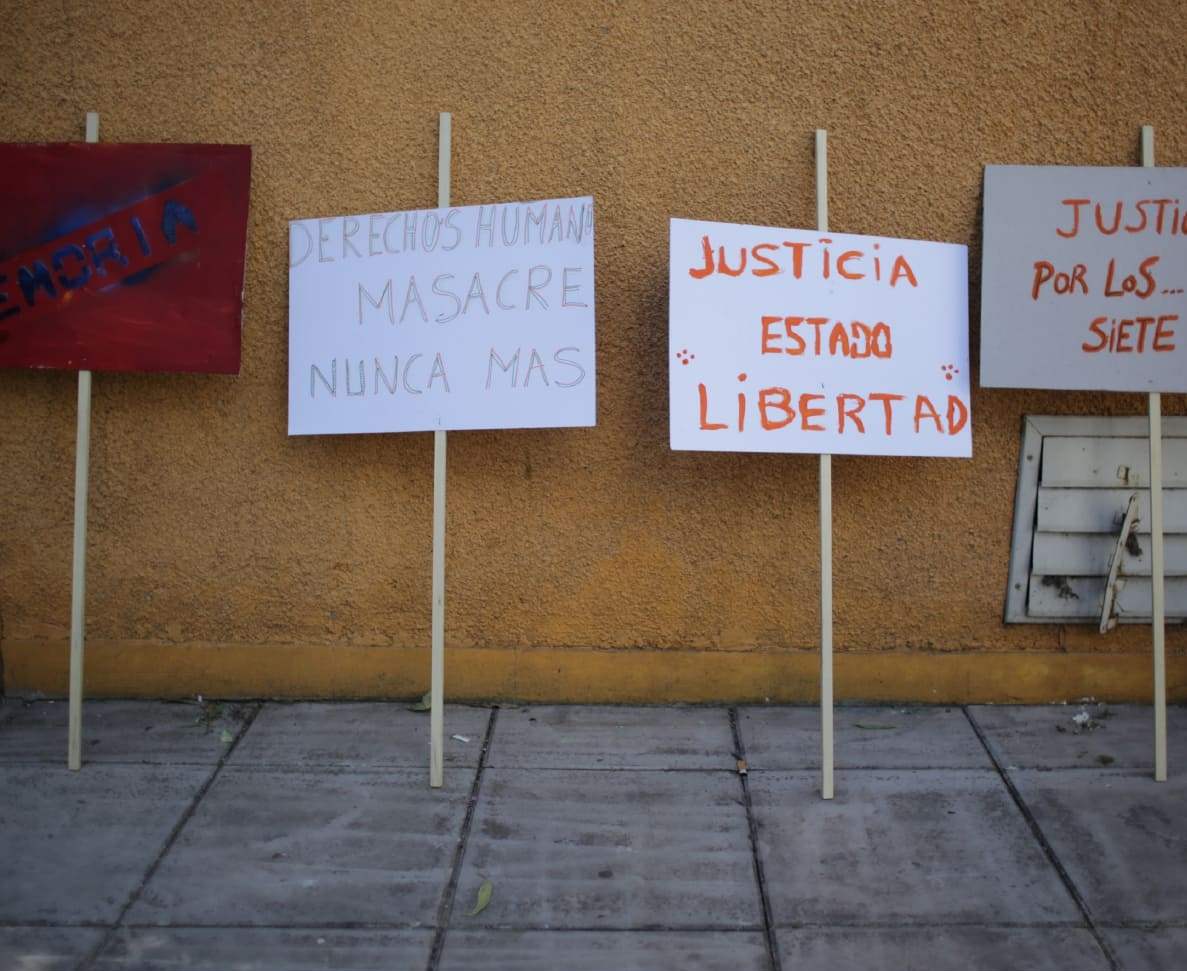 EMORIA
DERECHOS HUMANO
MASACRE
NUNCA MAS
JUSTICIA
ESTADO
LIBERTAD
JUSTIC
POR LOS...
SIETE